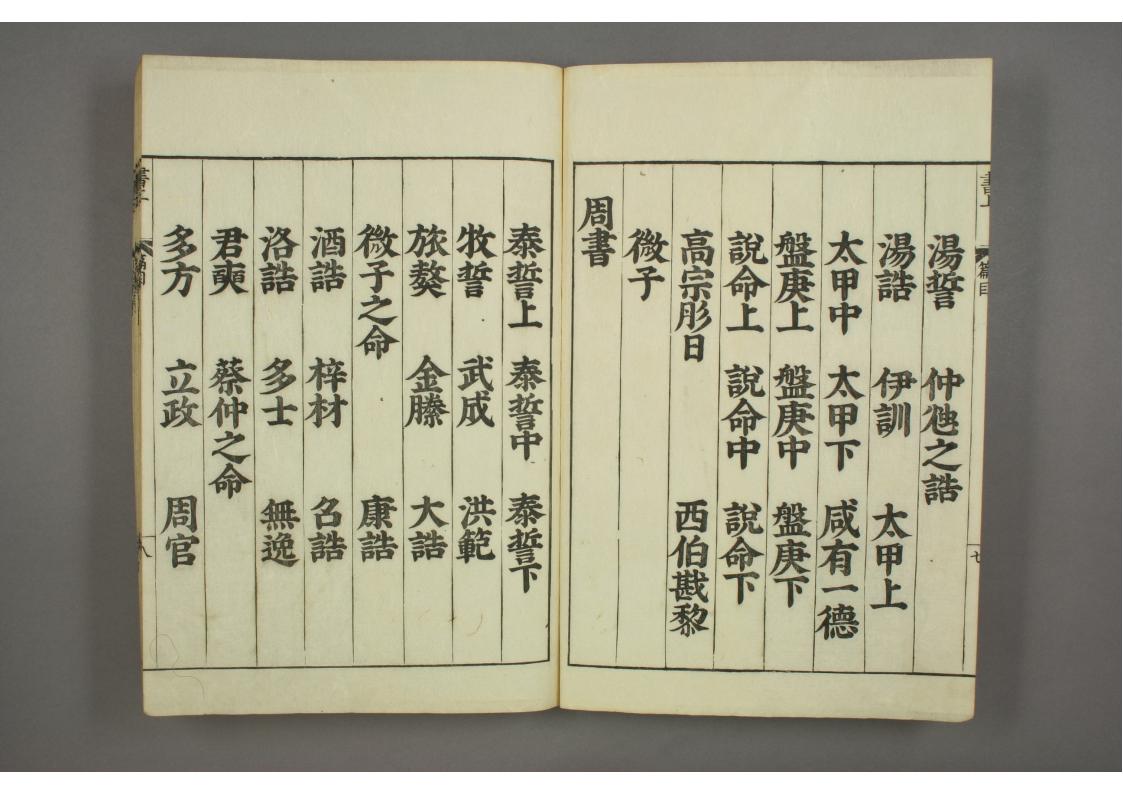 湯誓 仲虺之誥
湯誥 伊訓 太甲上
太甲中 太甲下 咸有一德
盤庚上 盤庚中 盤庚下
說命上 說命中 說命下
高宗肜日 西伯戡黎
微子
周書
泰誓上 泰誓中 泰誓下
牧誓 武成 洪範
旅獒 金縢 大誥
微子之命 康誥
酒誥 梓材 召誥
洛誥 多士 無逸
君奭 蔡仲之命
多方 立政 周官
書上 篇目 七
八